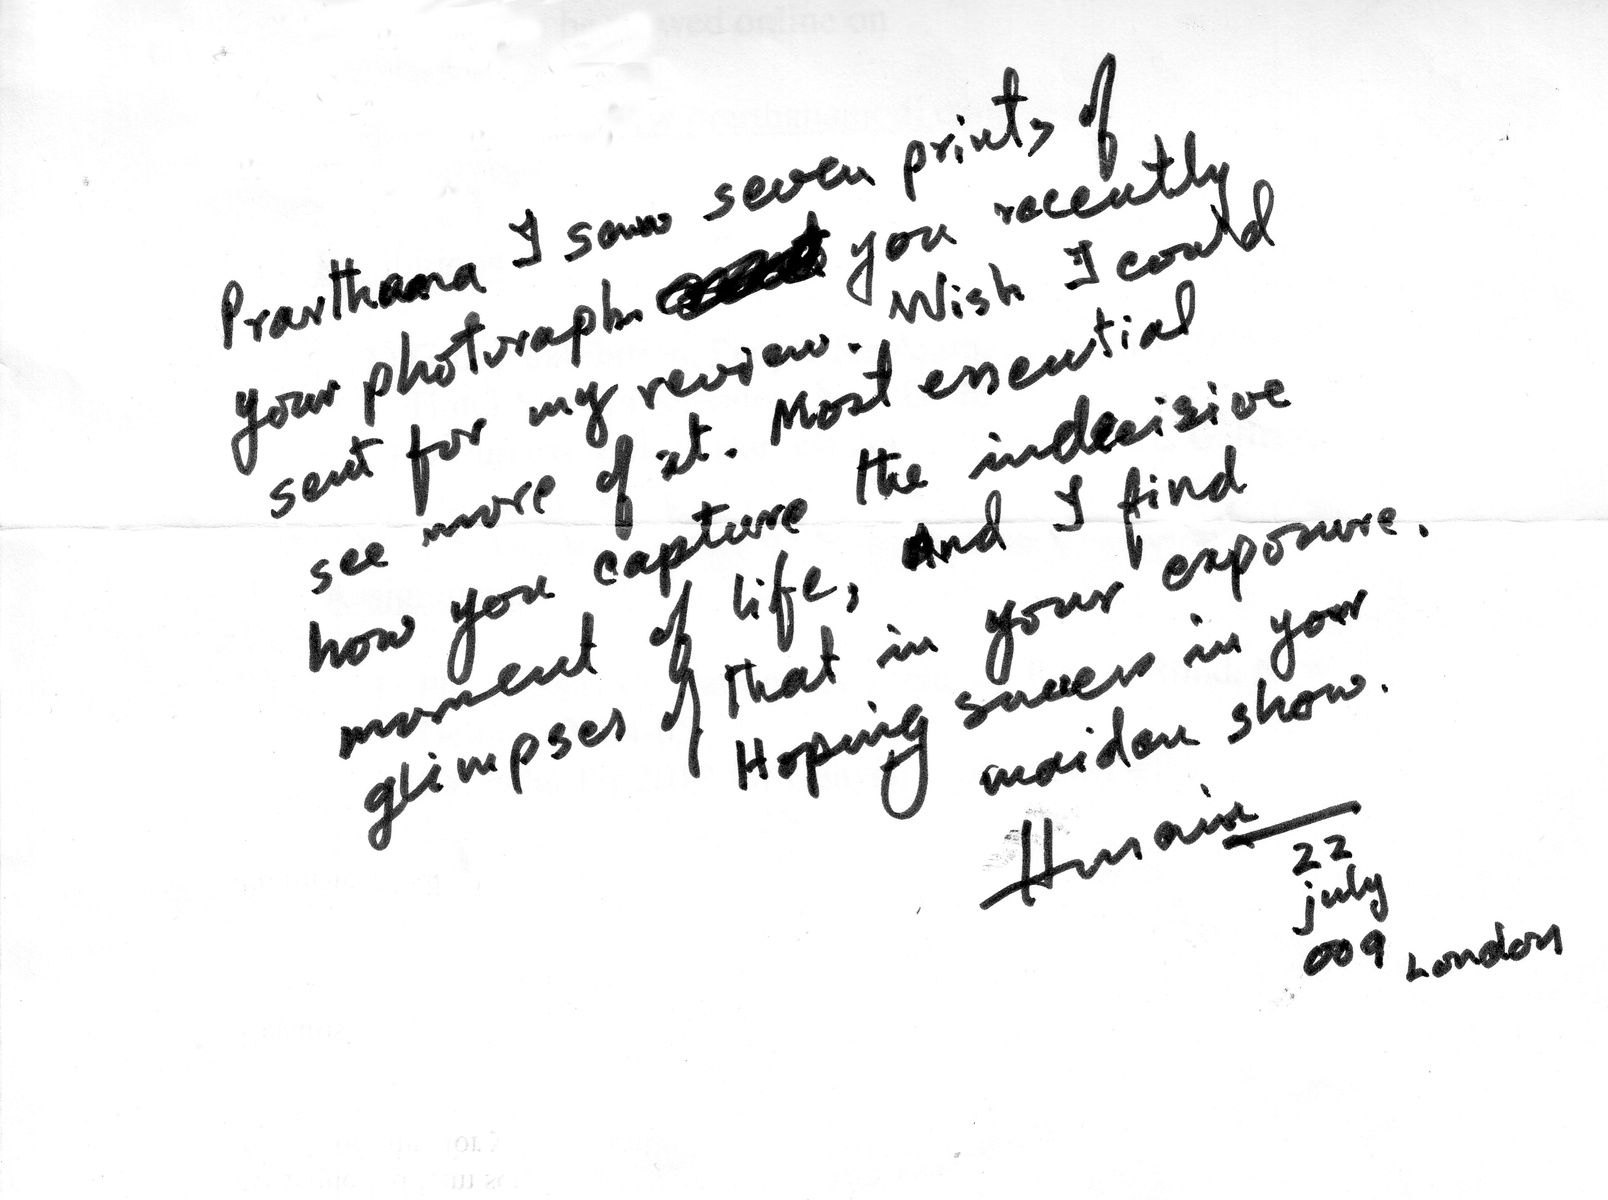 Prarthana I saw seven prints of
your photograph you recently
sent for my review. Wish I could
see more of it. Most essential
how you capture the indecisive
moment of life, And I find
glimpses of that in your exposure.
Hoping success in your
maiden show.
Husain
22
july
009 London